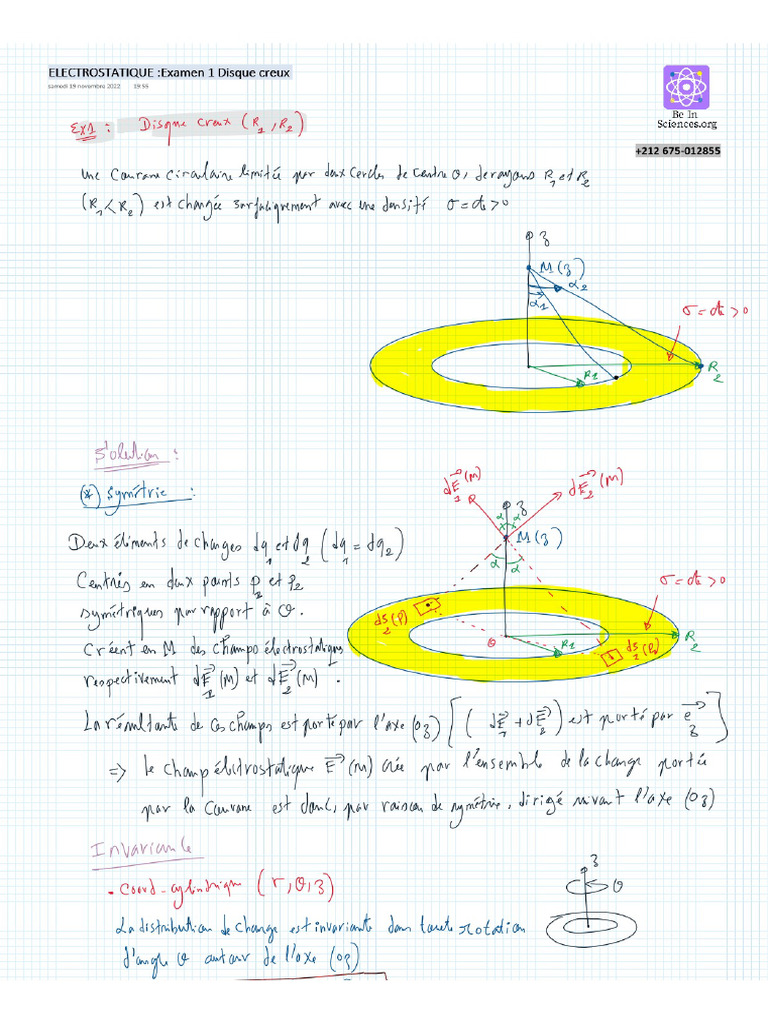 ELECTROSTATIQUE :Examen 1 Disque creux
samedi 19 novembre 2022 19:55
Be In
Sciences.org
+212 675-012855
Ex1 : Disque creux (R1, R2)
Une Couronne circulaire limitée par deux Cercles de Centre O, de rayons R1 et R2
(R1 < R2) est chargée surfaciquement avec une densité σ = cte > 0
z
M(z)
α2
α1
σ = cte > 0
R1
R2
Solution :
(*) Symétrie :
dE1(M)
dE2(M)
z
α α
M(z)
α α
Deux éléments de charges dq1 et dq2 (dq1 = dq2)
Centrés en deux points P1 et P2
symétriques par rapport à O.
Créent en M des champs électrostatiques
respectivement dE1(M) et dE2(M).
σ = cte > 0
O
R1
R2
La résultante de ces champs est portée par l'axe (Oz) [(dE1 + dE2) est porté par ez]
=> le champ électrostatique E(M) crée par l'ensemble de la charge portée
par la Couronne est donc, par raison de symétrie, dirigé suivant l'axe (Oz)
Invariance
• Coord-cylindrique (r, θ, z)
z
θ
La distribution de charge est invariante dans toute rotation
d'angle θ autour de l'axe (Oz)